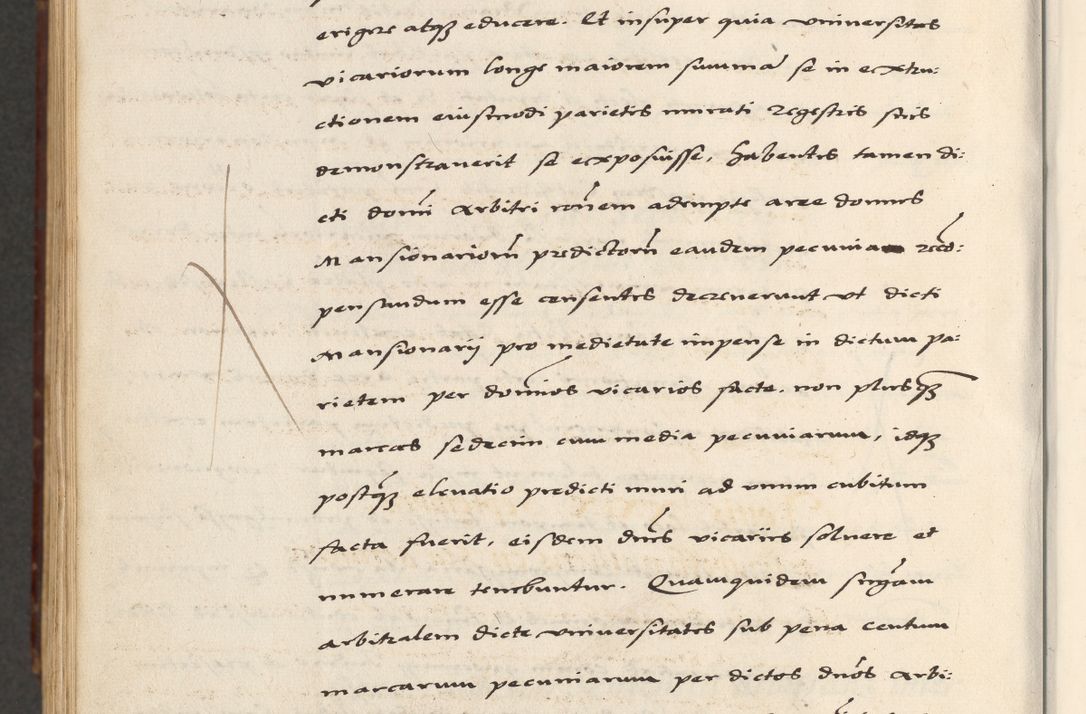 erigere atq̃ educere. Et insuper quia vniuersitas
vicariorum longe maiorem summã se in extru:
ctionem eiusmodi parietis murati regestris suis
demonstrauerit se exposuisse, habentes tamen di:
cti domĩ Arbitri rõnem adempte aree domus
Mansionariorũ predictorũ eandem pecunia recõ:
pensandum esse censentes decreuerunt vt dicti
Mansionarij pro medietate impense in dictum pa:
rietem per domĩos vicarios facte, non plusq̃
marcas sedecim cum media pecuniarum, idq̃
postq̃ eleuatio predicti muri ad vnum cubitum
facta fuerit, eisdem dñis vicariis soluere et
numerare tenebuntur. Quamquidem
arbitralem dicte vniuersitates sub pena centum
marcarum pecuniarum per dictos dños Arbi: